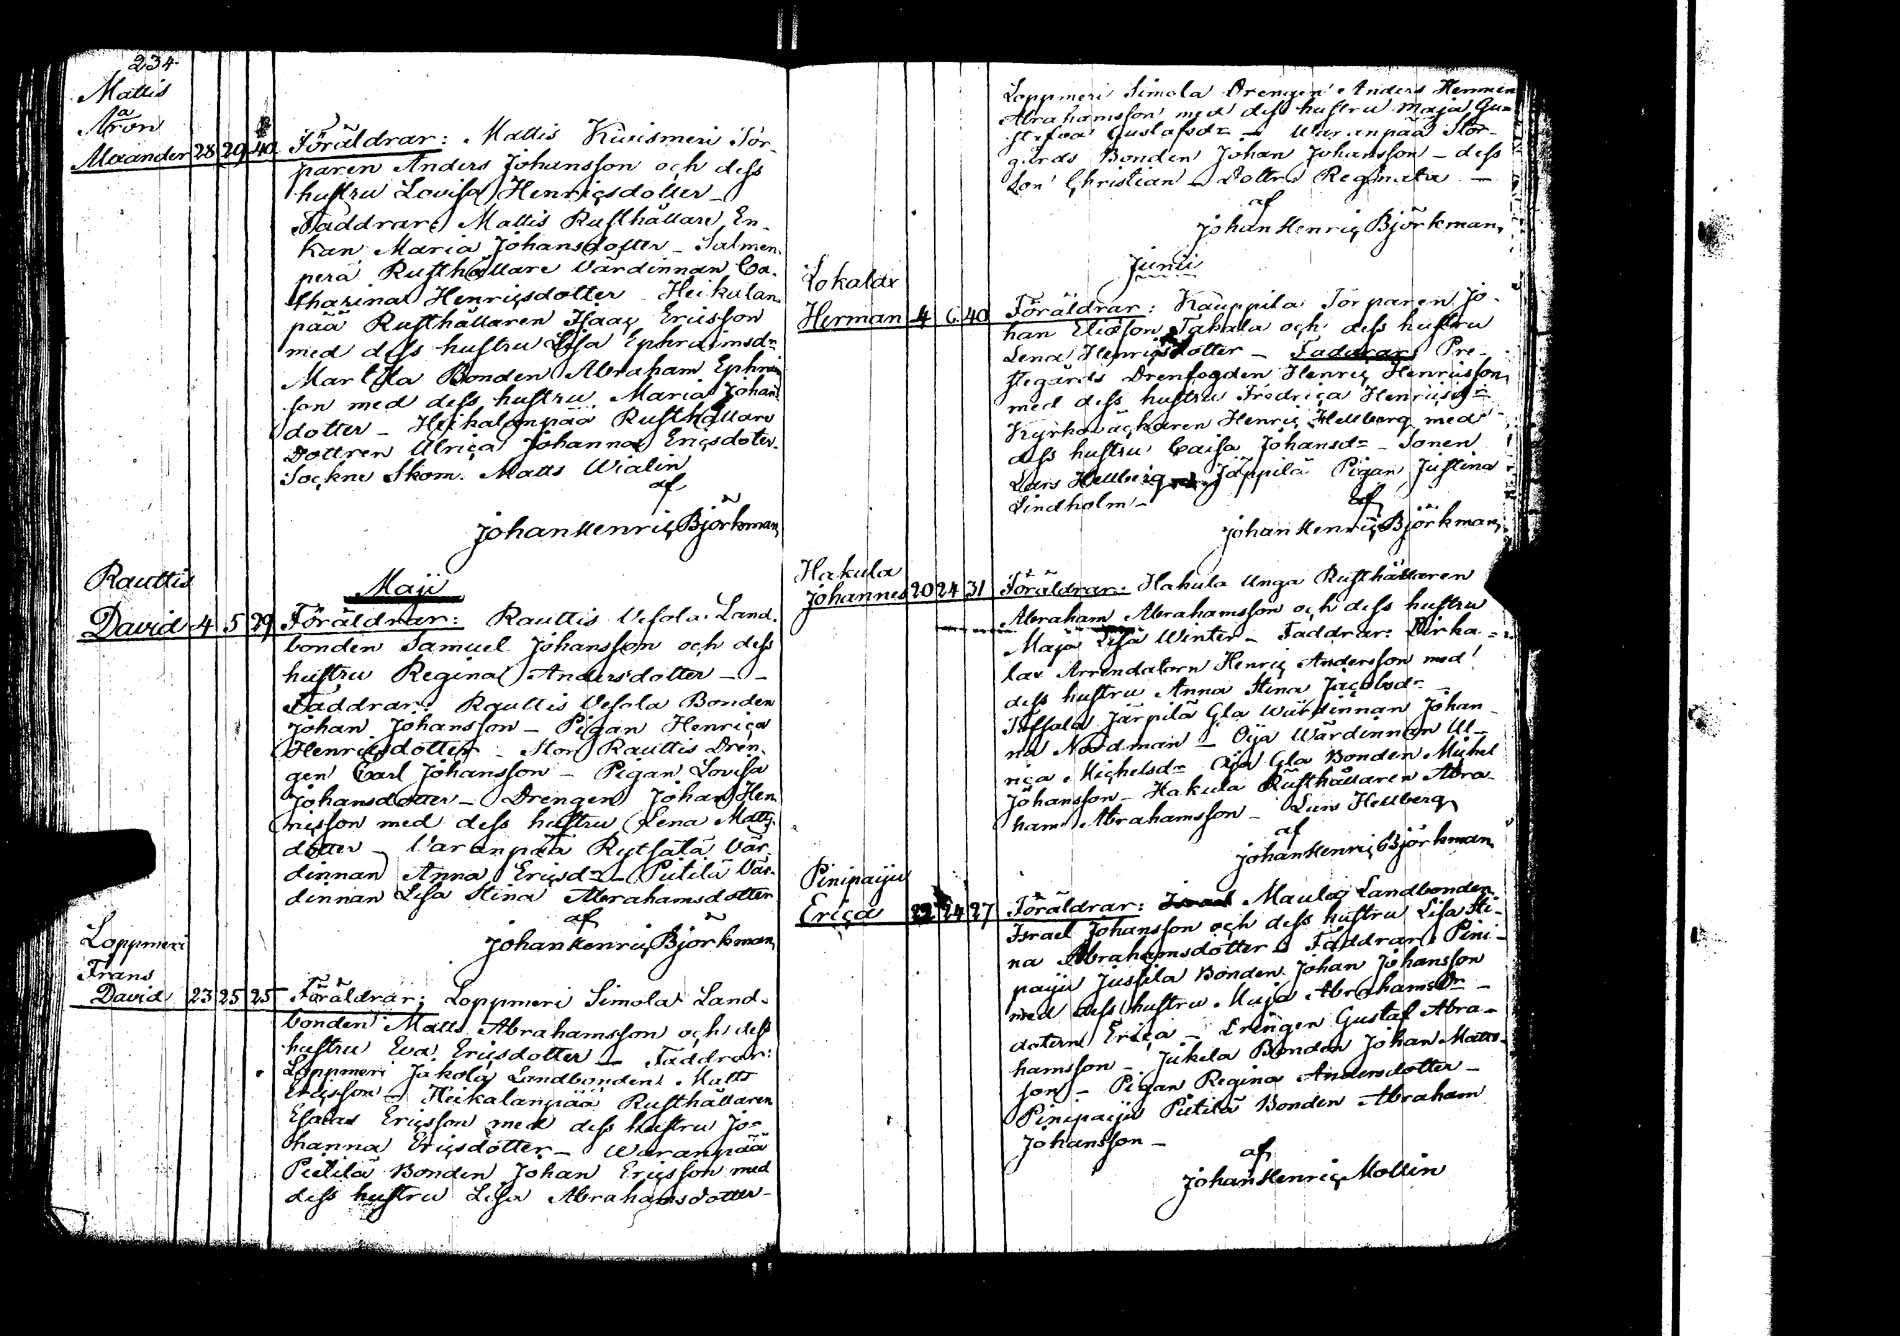 234.
Mattis
Aron
Alexander 28 29 40 Föräldrar: Mattis Kivismeri Tor-
paren Anders Johansson och dess
hustru Lovisa Henricsdotter –
Faddrar: Mattis Rusthållare En-
kan Maria Johansdotter – Salmen-
perä Rusthållare Värdinnan Ca-
tharina Henricsdotter Heikalan-
pää Rusthållaren Isaac Ericsson
med dess hustru Lisa Ephraimsdr
Martila Bonden Abraham Ephraim
son med dess hustru Maria Johans
dotter – Heikalanpää Rusthållare
Dottren Ulrica Johanna Ericsdoter.
Sockne Skom. Matts Widlin
af
Johan Henric Björkman
Maji
Rauttis
David 4 5 29 Föräldrar: Rauttis Vesola Land-
bonden Samuel Johansson och dess
hustru Regina Andersdotter – –
Faddrar: Rauttis Vesola Bonden
Johan Johansson – Pigan Henrica
Henricsdotter – Stor Rauttis Dren-
gen Carl Johansson – Pigan Lovisa
Johansdotter – Drengen Johan Hen
ricsson med dess hustru Lena Matts-
dotter – Varanpää Rytsälä Vär-
dinnan Anna Ericsdr – Pietilä Vär-
dinnan Lisa Stina Abrahamsdotter
af
Johan Henric Björkman
Loppmeri
Frans
David 23 25 25 Föräldrar: Loppmeri Simola Land-
bonden Matts Abrahamsson och dess
hustru Eva Ericsdotter – Faddrar:
Loppmeri Jakola Landbonden Matts
Ericsson – Heikalanpää Rusthållaren
Esaias Ericsson med dess hustru Jo-
hanna Ericsdotter – Waranpää
Pietilä Bonden Johan Ericsson med
dess hustru Lisa Abrahamsdotter –
Loppmeri Simola Drengen Anders Herman
Abrahamsson med dess hustru Maja Gu-
stafva Gustafsdr – Waranpää Stor-
gårds Bonden Johan Johansson – dess
Son Christian – Dottren Reginata –
af
Johan Henric Björkman
Junii
Lokalax
Herman 4 6 40 Föräldrar: Kauppila Torparen Jo-
han Eliasson Takala och dess hustru
Lena Henricsdotter – Faddrar: Pre-
stegårds Drenfogden Henric Henricsson
med dess hustru Fredrica Henricsdr
Kyrkoväcktaren Henric Hellberg med
dess hustru Caisa Johansdr – Sonen
Lars Hellberg Jäppilä Pigan Justina
Lindholm –
af
Johan Henric Björkman
Hakula
Johannes 20 24 31 Föräldrar: Hakula Unga Rusthållaren
Abraham Abrahamsson och dess hustru
Maja Lisa Winter – Faddrar: Pirka-
lax Arrendatorn Henric Andersson med
dess hustru Anna Stina Jacobsdr –
Järpilä Gla Wärdinnan Johan-
na Nordman – Öija Wärdinnan Ul-
rica Michelsdr Öija Gla Bonden Michel
Johansson – Hakula Rusthållaren Abra-
ham Abrahamsson – Lars Hellberg
af
Johan Henric Björkman
Pinipaiju
Erica 22 24 27 Föräldrar: Maula Landbonden
Israel Johansson och dess hustru Lisa Sti-
na Abrahamsdotter – Faddrar: Pini-
paiju Jussila Bonden Johan Johansson
med dess hustru Maja AbrahamsDr –
dotern Erica – Drengen Gustaf Abra-
hamsson – Jukela Bonden Johan Matts-
son – Pigan Regina Andersdotter –
Pinipaiju Pietilä Bonden Abraham
Johansson –
af
Johan Henric Mollin